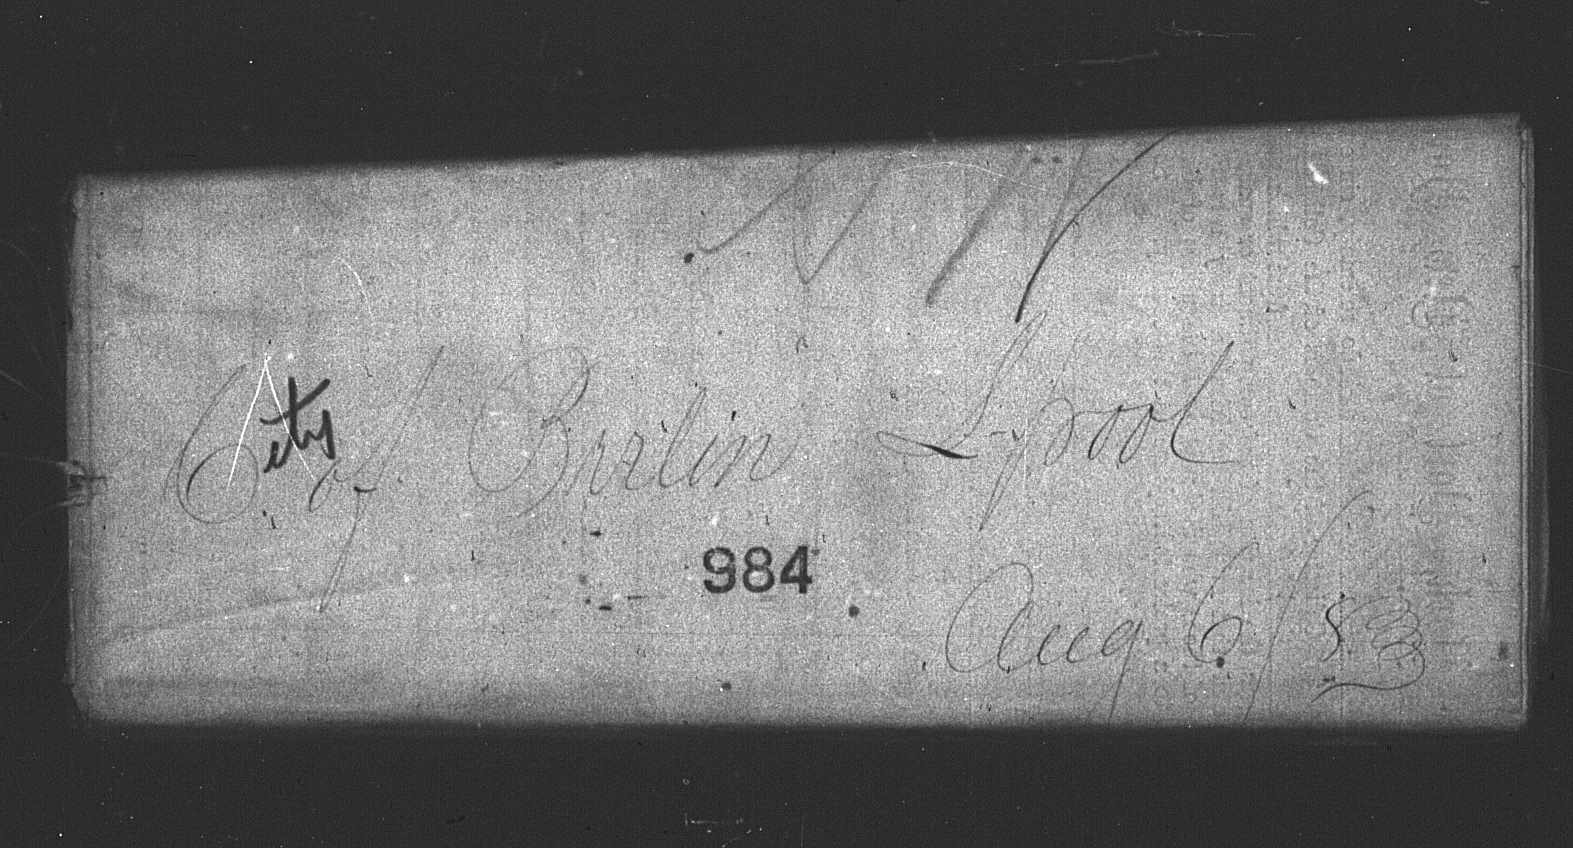 City of Berlin L'pool
984
Aug 6/83